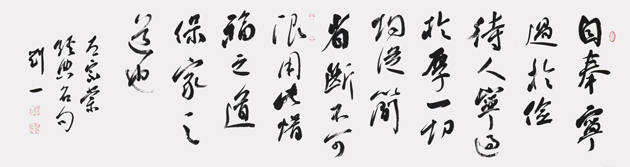 自奉寧
過於儉
待人寧過
於厚一切
均從簡
省斷不可
浪用此惜
福之道
保家之
道也
左宗棠
經典名句
劉一